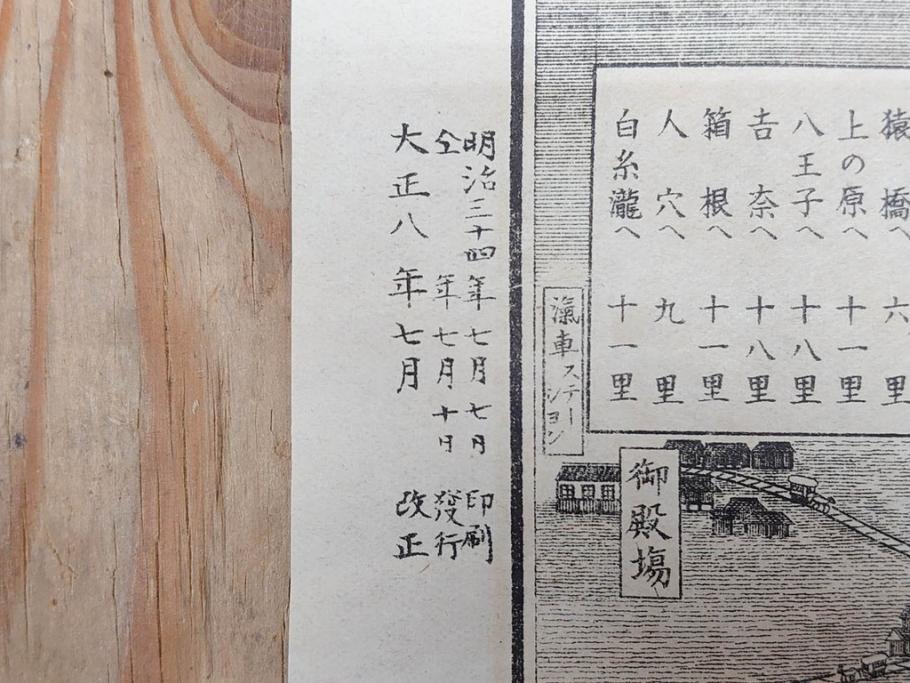 猿橋へ 六里
上の原へ 十一里
八王子へ 十八里
吉奈へ 十八里
箱根へ 十一里
人穴へ 九里
白糸瀧へ 十一里
御殿塲
滊車ステーション
明治三十四年七月七日印刷
仝年七月十日發行
大正八年七月改正